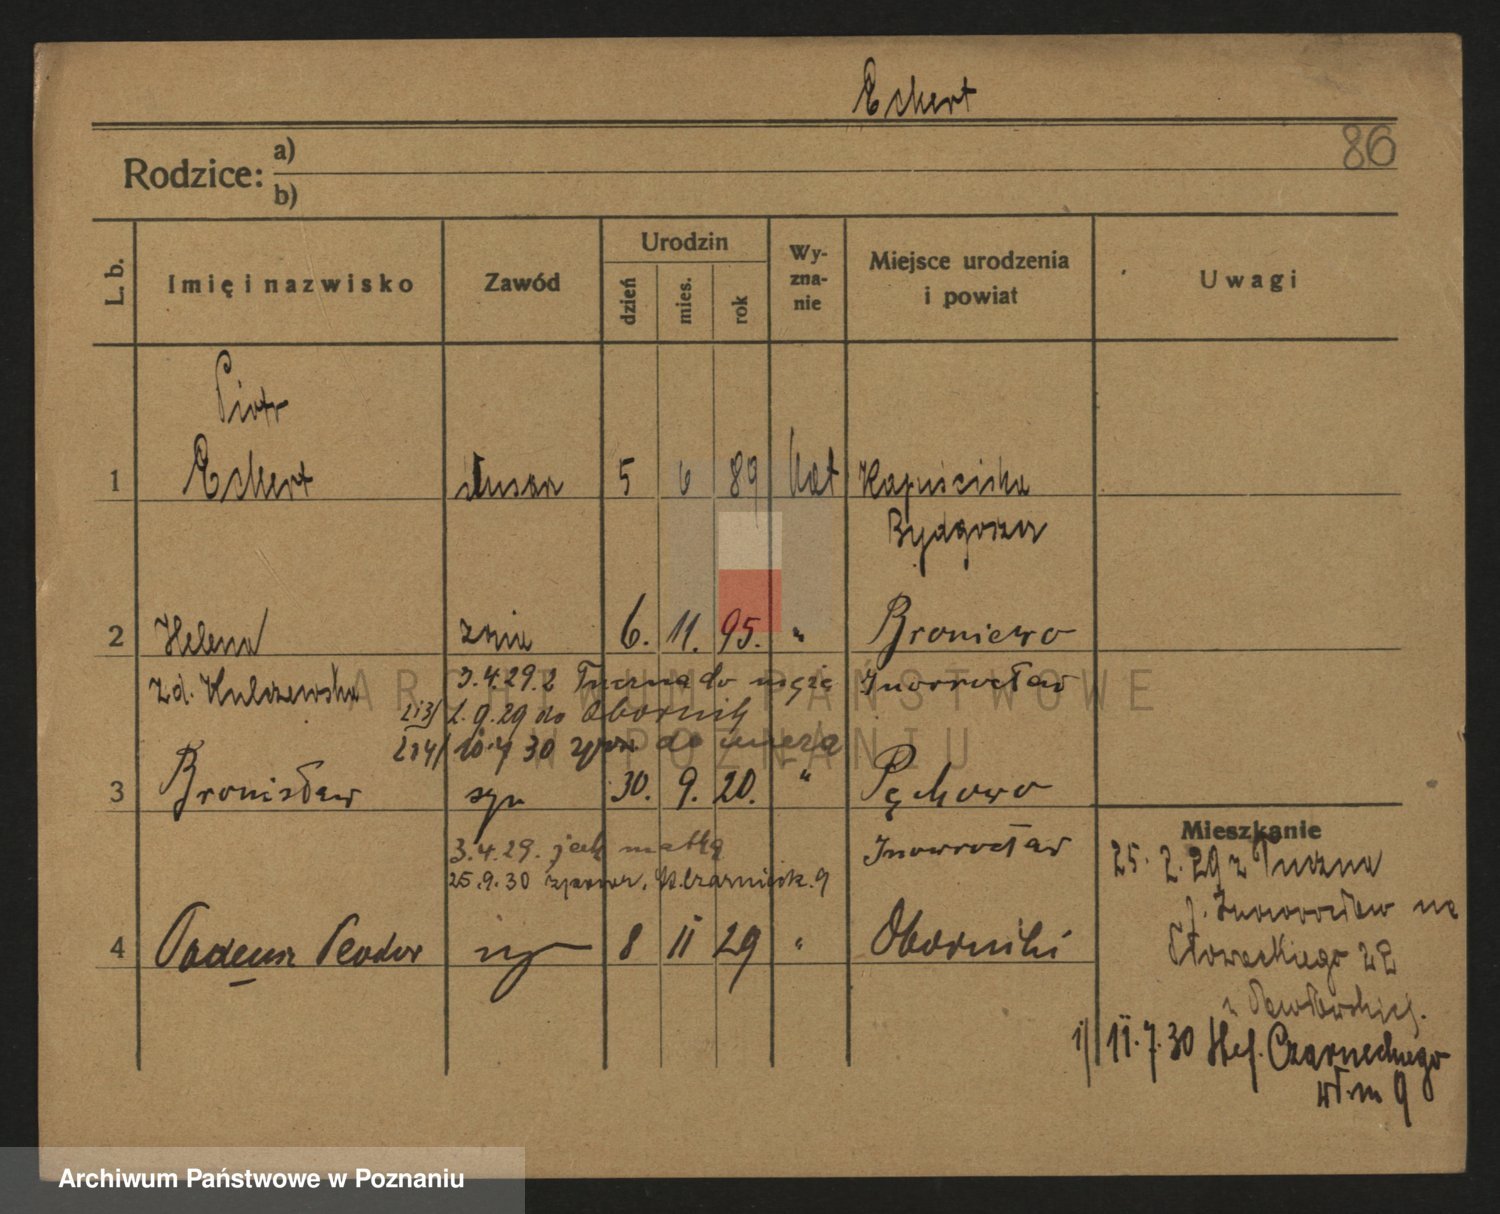 Eckert
86
Rodzice: a)
b)
L. b. Imię i nazwisko Zawód Urodzin dzień mies. rok Wyznanie Miejsce urodzenia i powiat Uwagi
Piotr
1 Eckert ślusarz 5 6 89 kat Kapuściska
Bydgoszcz
2 Helena żona 6. 11. 95. " Broniewo
zd. 3.4.29. z Tuczna do męża Inowrocław
2i3/ 2.9.29 do Oborniki
2i4/ 10.7 30 do męża
3 Bronisław syn 30. 9. 20. " Pęchowo
3.4.29. jak matka Inowrocław
25.9.30 Czarnieck. 9
4 Tadeusz Teodor 8 11 29 " Oborniki
Mieszkanie
25. 2. 29 z Tuczna
p. Inowrocław na
Słowackiego 22
u
1/ 11.7.30 Hef. Czarneckiego
m 9
ARCHIWUM PAŃSTWOWE
W POZNANIU
Archiwum Państwowe w Poznaniu